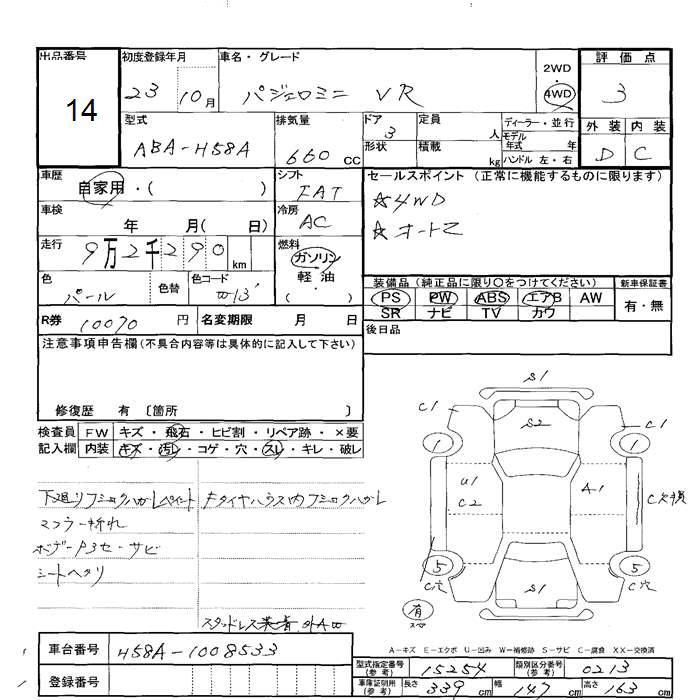 出品番号
14
初度登録年月
23 10月
車名・グレード
パジェロミニ VR
2WD
4WD
評価点
3
外装 内装
D C
型式
ABA-H58A
排気量
660 cc
ドア
3
形状
定員 人
積載 kg
ディーラー・並行
モデル年式 年
ハンドル 左・右
車歴
自家用・( )
シフト
FAT
車検
年 月( 日)
冷房
AC
セールスポイント (正常に機能するものに限ります)
☆4WD
☆オートエ
走行
9万2千290 km
燃料
ガソリン
軽油
( )
色
パール
色替
色コード
W13
装備品 (純正品に限り○をつけてください)
PS PW ABS エアB AW
SR ナビ TV カワ
新車保証書
有・無
R券 10070 円
名変期限 月 日
後日品
注意事項申告欄 (不具合内容等は具体的に記入して下さい)
修復歴 有 〔箇所 〕
検査員記入欄
FW キズ・飛石・ヒビ割・リペア跡・×要
内装 キズ・汚レ・コゲ・穴・スレ・キレ・破レ
下廻リフミックハガレペイント
マフラー折れ
ボデーP3セ-サビ
シートヘタリ
Fタイヤハウス内フミックハガレ
スタッドレス 外AW
S1
C1
S2
C1
1
1
U1
C2
A1
C欠損
5
5
C穴
C穴
S1
有
スペア
A-キズ E-エクボ U-凹み W-補修跡 S-サビ C-腐食 XX-交換済
車台番号 H58A-1008533
登録番号
型式指定番号 (参考) 15254
類別区分番号 (参考) 0213
車庫証明用 (参考)
長さ 339 cm
幅 147 cm
高さ 163 cm